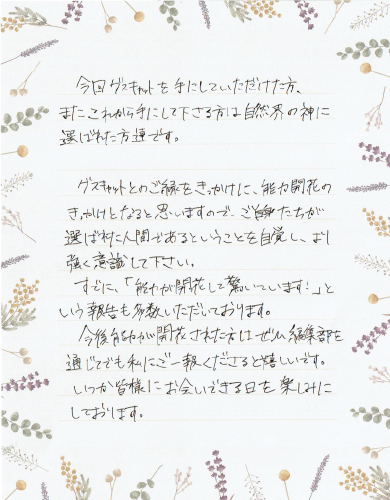 今回ゲスキャットを手にしていただけた方、
またこれから手にして下さる方は自然界の神に
選ばれた方達です。
ゲスキャットとのご縁をきっかけに、能力開花の
きっかけとなると思いますので、ご自身たちが
選ばれた人間であるということを自覚し、より
強く意識して下さい。
すでに、「能力が開花して驚いています!」と
いう報告も多数いただいております。
今後能力が開花された方はぜひ編集部を
通じてでも私にご一報くださると嬉しいです。
いつか皆様にお会いできる日を楽しみに
しております。